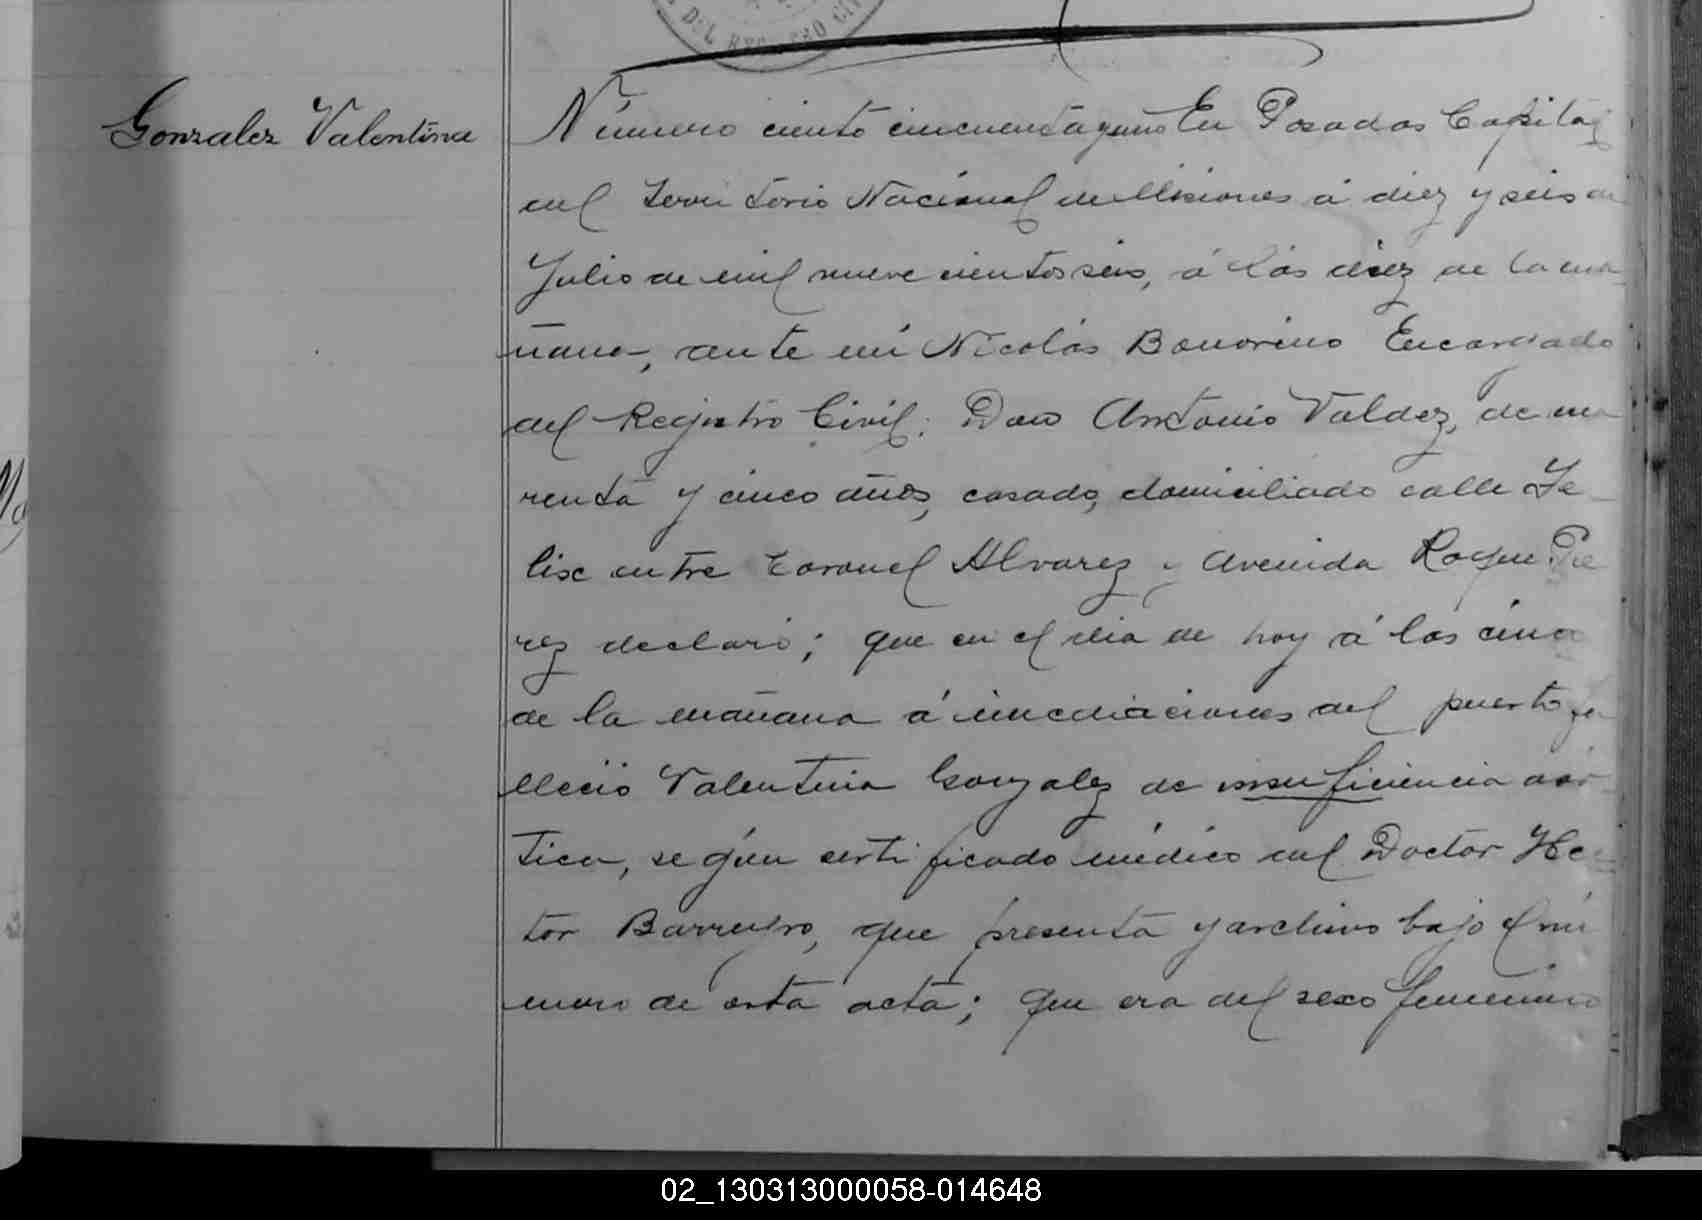 DEL REGISTRO CIV
Gonzalez Valentina
Número ciento cincuenta y uno En Posadas Capital
del Territorio Nacional de Misiones á diez y seis de
Julio de mil nueve cientos seis, á las diez de la ma
ñana, ante mi Nicolás Bonorino Encargado
del Registro Civil: Don Antonio Valdez, de cua
renta y cinco años, casado, domiciliado calle Fe-
lix entre Coronel Alvarez y Avenida Roque Pe
rez declaró; que en el dia de hoy á las cinco
de la mañana á inmediaciones del puerto fa
lleció Valentina Gonzalez de insuficiencia aór-
tica, según certificado médico del Doctor Hec
tor Barreyro, que presenta y archivo bajo el nú
mero de esta acta; que era del sexo femenino
02_130313000058-014648